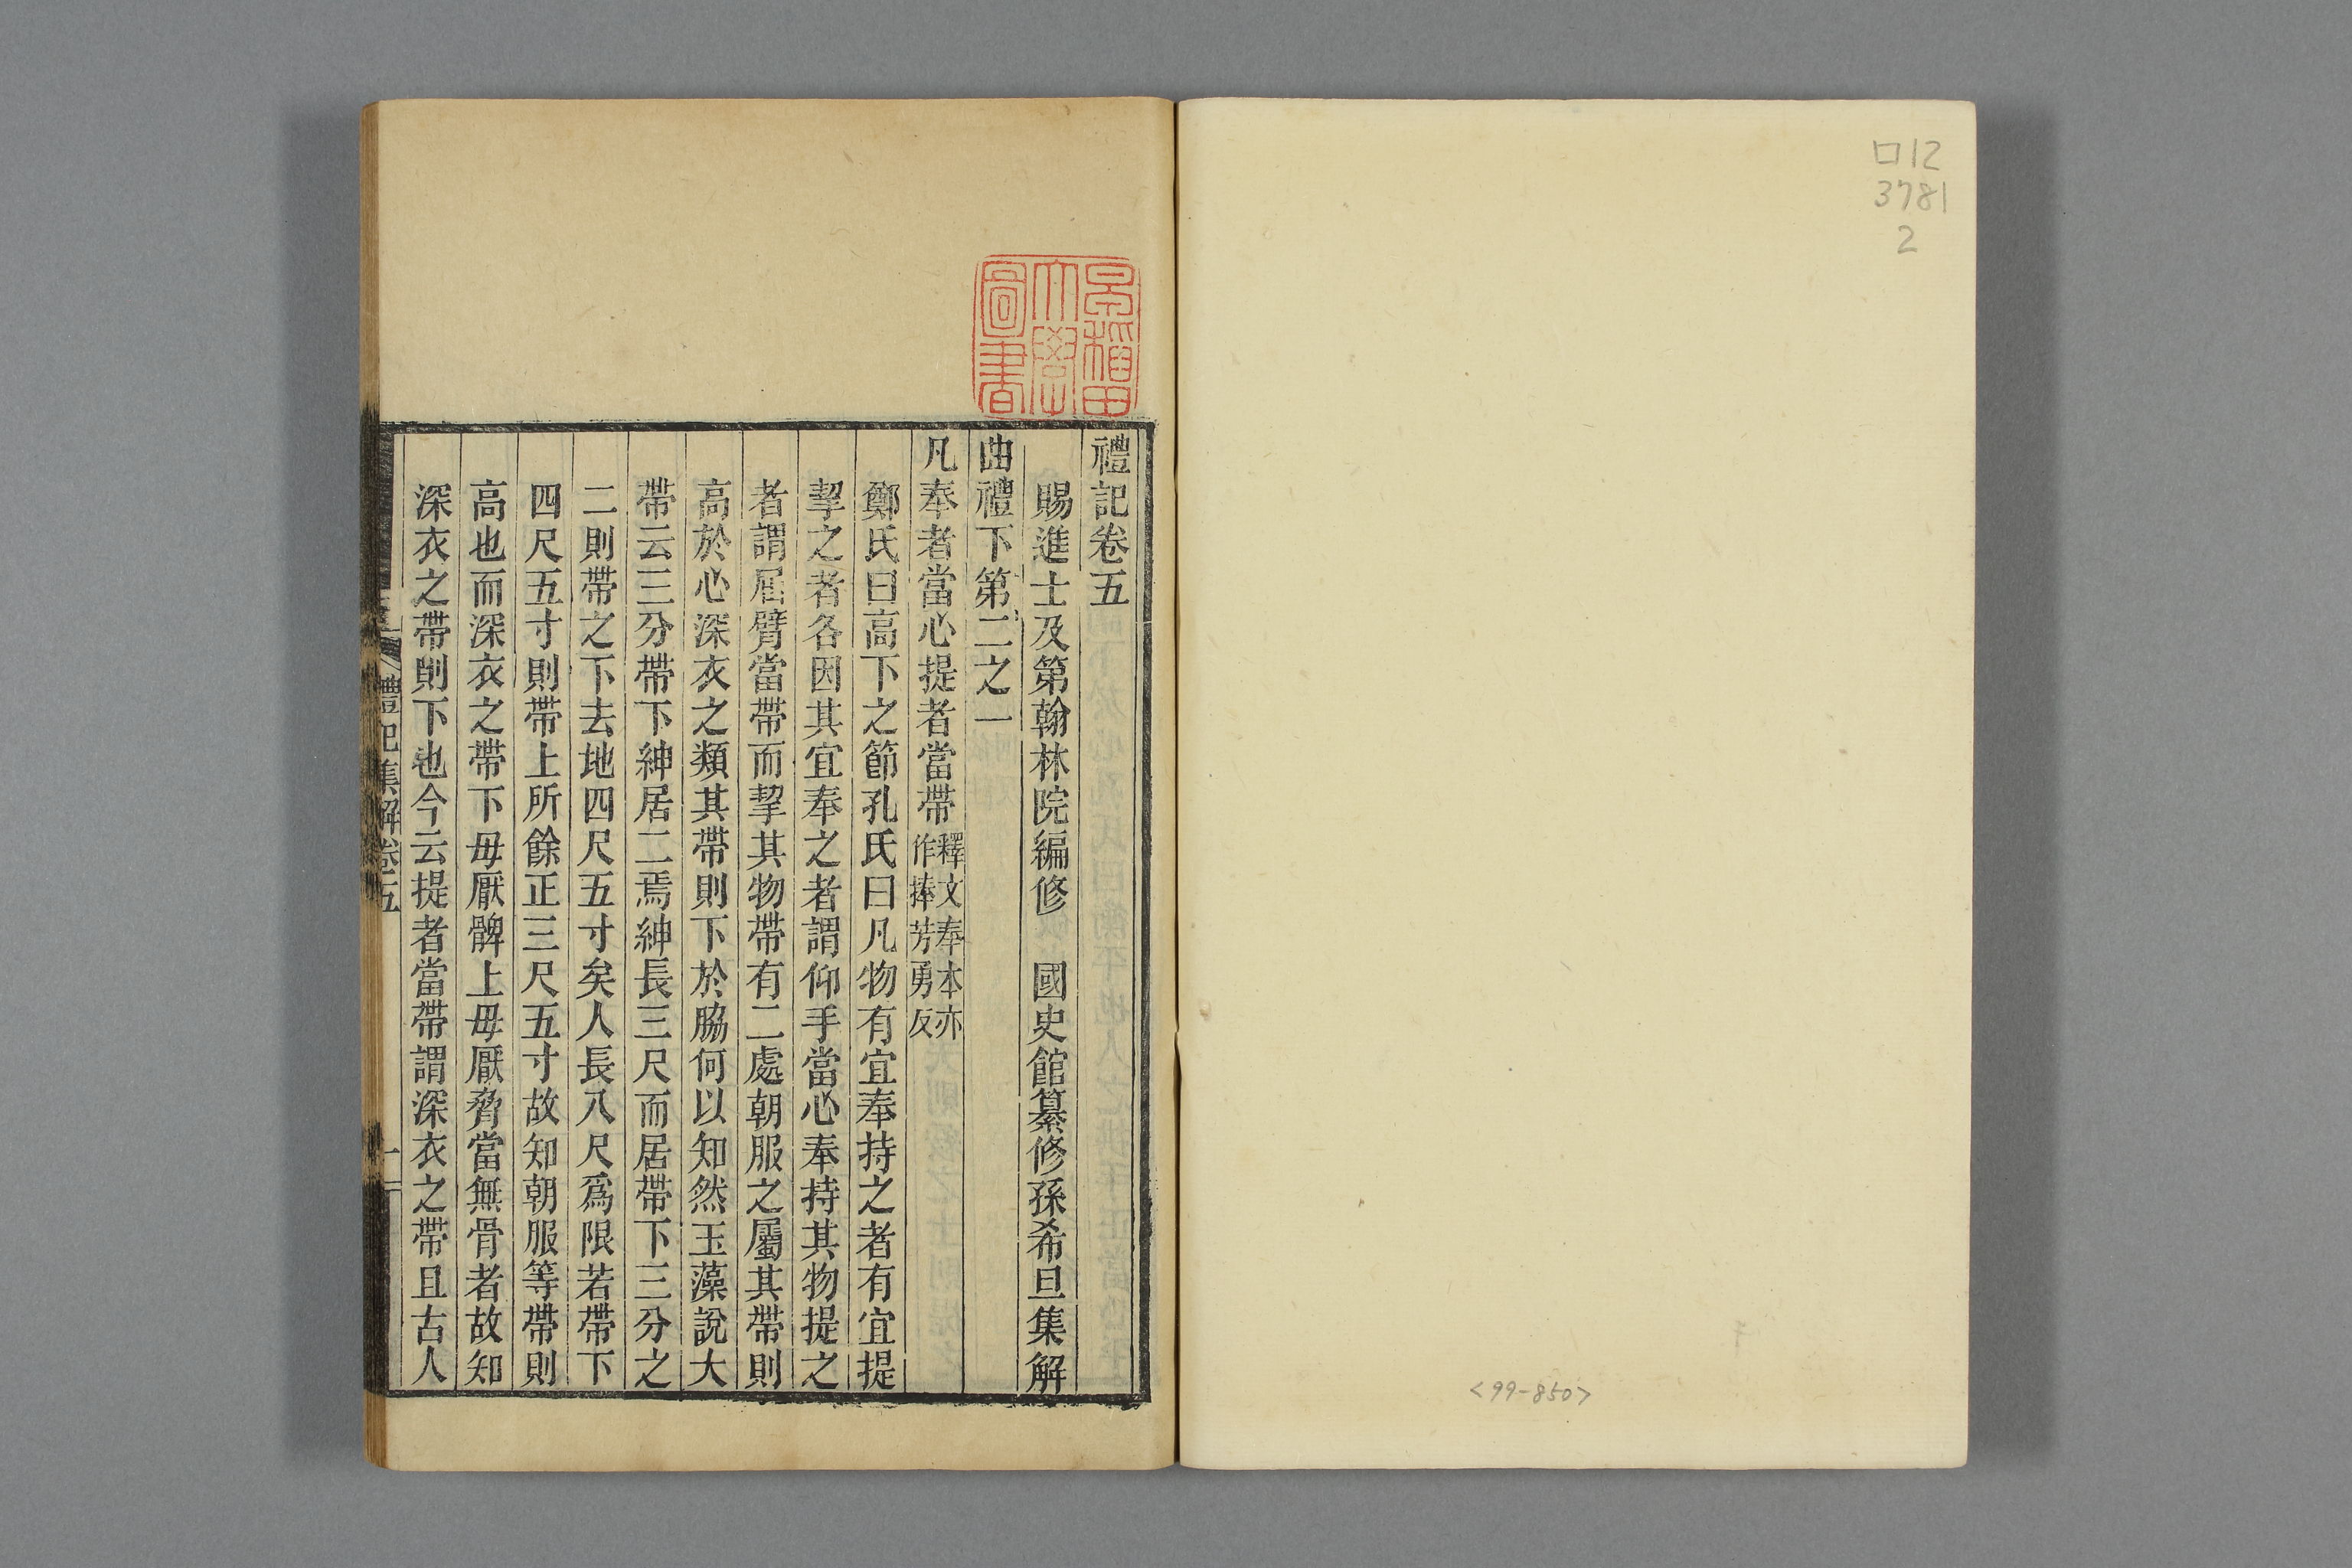 口12
3781
2
<99-850>
早稲田
大學
圖書
禮記卷五
賜進士及第翰林院編修 國史館纂修孫希旦集解
曲禮下第二之一
凡奉者當心提者當帶釋文奉本亦作捧芳勇反
鄭氏曰高下之節孔氏曰凡物有宜奉持之者有宜提
挈之者各因其宜奉之者謂仰手當心奉持其物提之
者謂屈臂當帶而挈其物帶有二處朝服之屬其帶則
高於心深衣之類其帶則下於脇何以知然玉藻說大
帶云三分帶下紳居二焉紳長三尺而居帶下三分之
二則帶之下去地四尺五寸矣人長八尺爲限若帶下
四尺五寸則帶上所餘正三尺五寸故知朝服等帶則
高也而深衣之帶下毋厭髀上毋厭脅當無骨者故知
深衣之帶則下也今云提者當帶謂深衣之帶且古人
禮記集解卷五
一